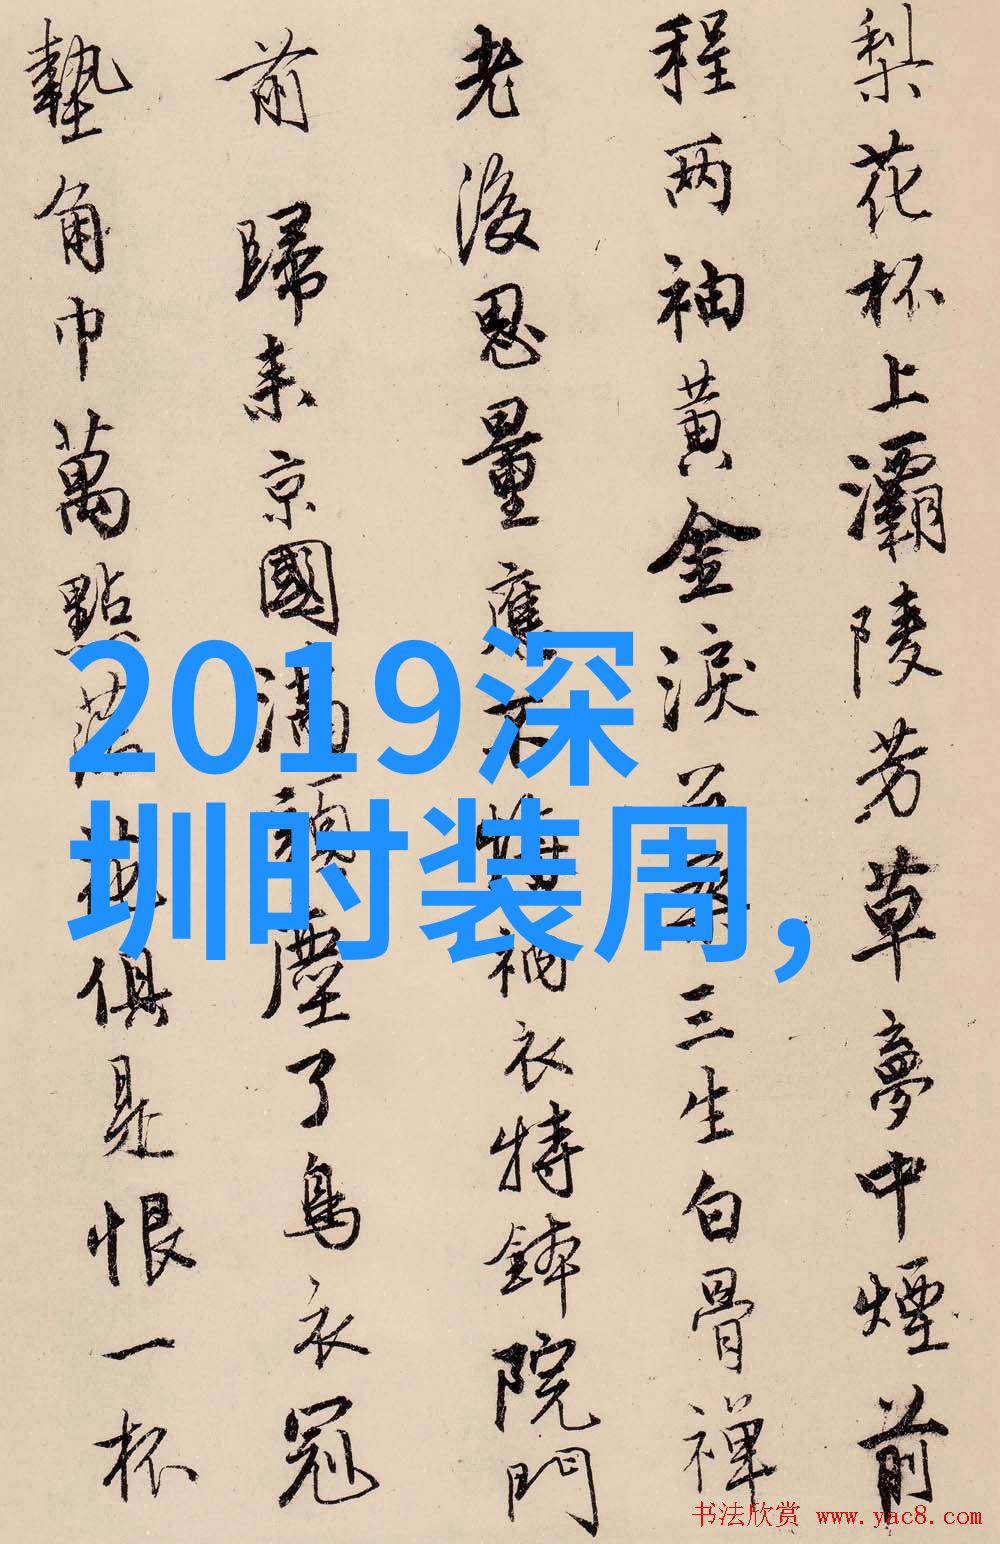 梨花杯上灞陵芳草夢中煙前
程两袖黄金淚三生白骨禪
老後思量應不悔衲衣持鉢院門
前 歸来京國滿頭塵了烏衣冠
墊角巾萬點落花俱是恨一杯
2019深
圳时装周,
书法欣赏 www.yac8.com